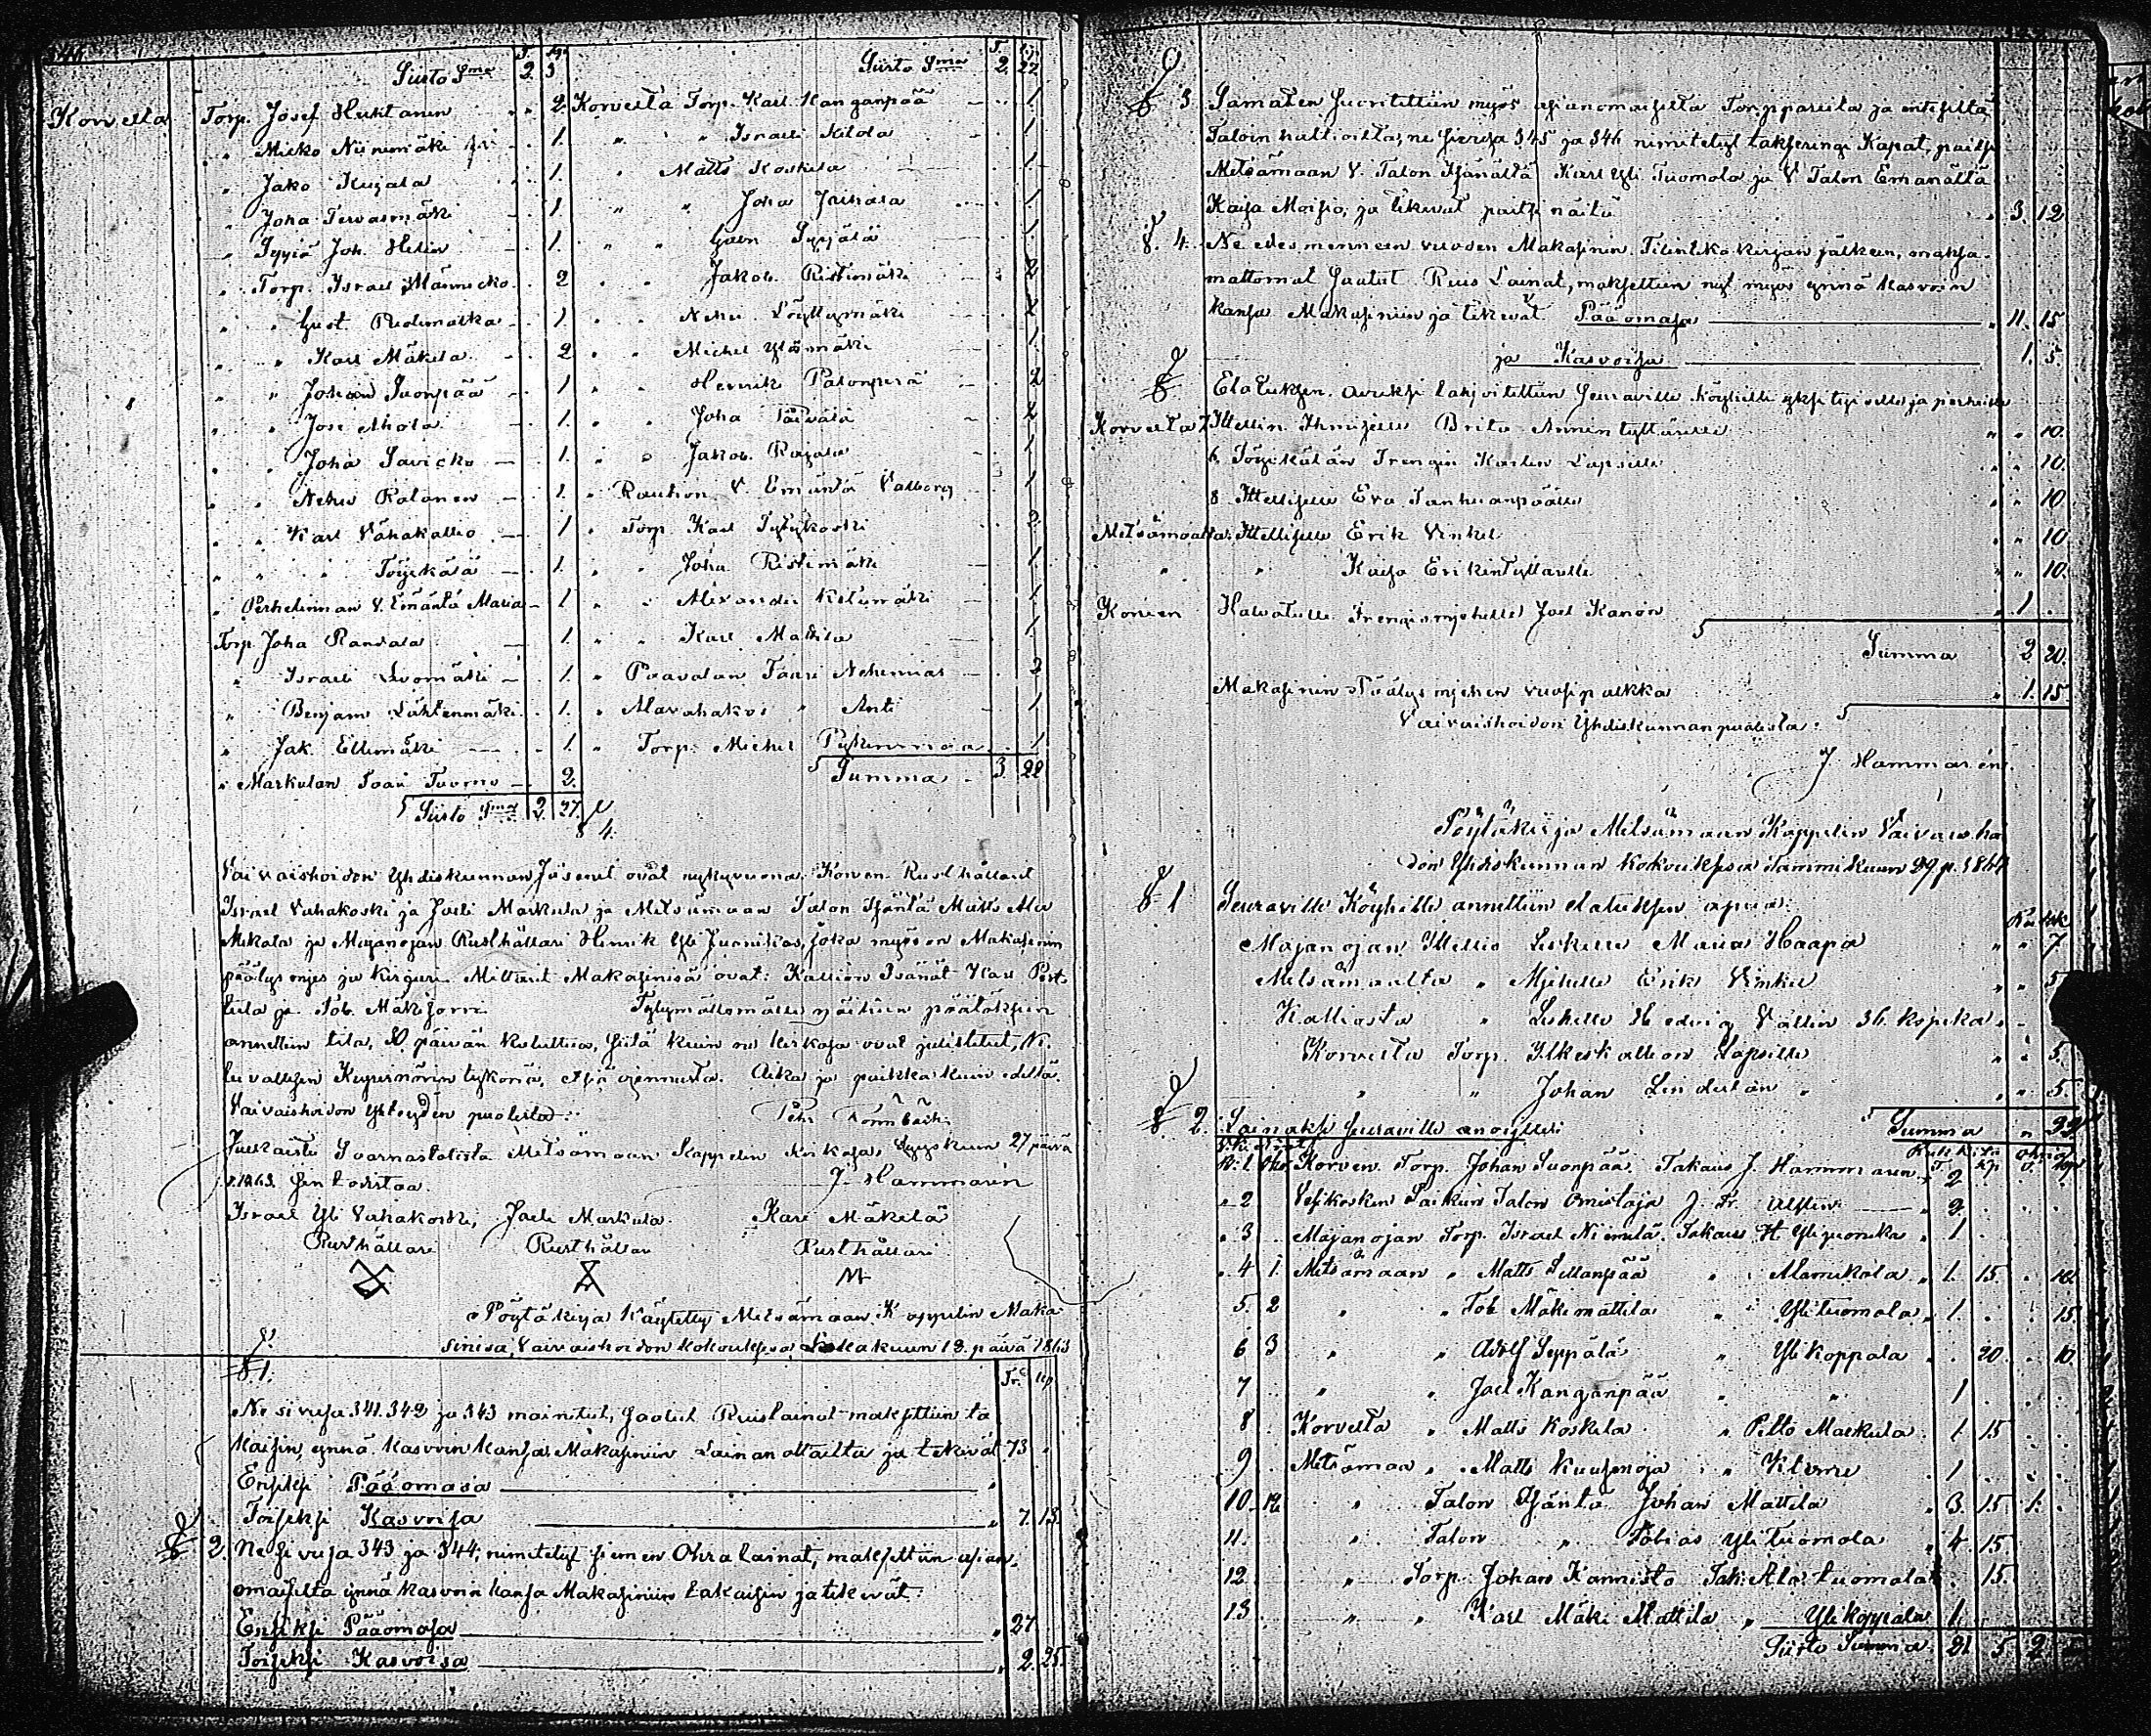 346
Siirto Sma 2. 3
Korvelta Torp. Josef Huhtanen 2.
" Micko Niinimäki 1.
" Jako Kujala 1.
" Joha Tervasmäki 1.
" Syyiä Joh. Helin 1.
" Torp. Israel Männicko 2
" " Gust. Riolimatka 1
" " Karl Mäkela 2
" " Johan Suonpää 1
" " Jose Ahola 1.
" " Joha Savicko 1.
" " Nehe Ratanen 1.
" " Karl Vähakallio 1
" " " Töyrkälä 1.
" Perhelinnan V. Emäntä Maria 1
Torp. Joha Randala 1.
" Israeli Livomäki 1.
" Benjam Lähtenmäki 1.
" Jak. Ellimäki 1.
" Markulan Vaari Tuomo 2.
Siirto Sma 2. 27.
Siirto Sma 2. 22
Korvelta Torp. Karl Kanganpää 1
" " Israeli Kilola 1
" Matts Koskela 1
" " Joha Juhala 1
" " Gabr Syrjälä 1
" " Jakob. Ristimäki 2
" " Nehe. Löyttymäki 2
" " Michel Ylismäki 1
" " Henrik Palonperä 2
" " Joha Päivälä 2
" " Jakob. Rajala 1
" Rauhon V Emäntä Valborg 1
" Torp. Karl Tylykoski 2
" " Joha Ristimäki 1
" " Alexander Kielumäki 1
" " Karl Mattila 1
" Paavolan Vaari Nehemias 2
" Alavahakos " Anti 1
" Torp. Michel 1
Summa 3 22
§ 4.
Vaivaishoidon Yhdiskunnan Jäsenet ovat nykyvuonna: Korven Rusthållarit
Israel Vahakoski ja Joeli Markula ja Metsämaan Talon Isäntä Matts Ala
Mekola ja Majanojan Rusthållari Henrik Yli Juonikas, joka myös on Makasinin
päälys mjes ja kirjuri. Mittarit Makasinisa ovat: Kallion Isänät Karl Pert
tula ja Tob. Mäkijorri. Tytymättomälle näihin päätöksiin
annettiin tila, 30 päivän kuluttua, siitä kuin ne kirkosa ovat julistetut,
levallisen Kuvernörin tykönä, etsiä ojennusta. Aika ja paikka kuin edellä.
Vaivaishoidon Yhteyden puolesta: Pehr Törnbäck
Julkaistu Saarnastolista Metsämaan Kappelin Kirkosa, Syyskuun 27 päivä
v. 1863. sen todistaa. J. Hammarén
Israel Yli Vahakoski, Joeli Markula. Karl Mäkelä
Rusthållari Rusthållari Rusthållari
Pöytäkirja Käytetty Metsämaan Kappelin Maka
sinisa, Vaivaishoidon kokouksesa, Lokakuun 18. päivä 1863
§ 1. Tr. Kp
Ne sivusa 341. 342 ja 343 mainitut, saatut Ruislainat maksettiin ta
kaisin, ynnä kasvoin kansa Makasiniin Lainan ottailta ja tekivät 73
Ensiksi Pääomasa
Toiseksi Kasvoisa 7. 13.
§ 2. Ne sivusa 343 ja 344, nimitetyt siemen Ohra lainat, maksettiin asian
omaisilta ynnä kasvoin kansa Makasiniin takaisin ja tekivät
Ensiksi Pääomasa 27
Toiseksi Kasvoisa 2. 25.
§ 3 Samaten suoritettiin myös asianomaisilta Torppareilta ja entisiltä
Taloin haltioilta, ne sivusa 345 ja 346 nimitetyt takseringi Kapat, paitsi
Metsämaan V. Talon Isänältä Karl Yli Tuomola ja V Talon Emänältä
Kaisa Moisio, ja tekivat paitsi näitä 3. 12
§ 4. Ne edesmenneen vuoden Makasinin Tilintekokirjan jälkeen, maksa
mattomat saatut Ruis Lainat, maksettiin nyt myös ynnä kasvoin
kansa Makasiniin ja tekevät Pääomasa 11. 15
ja Kasvoisa 1. 5
§ Elatuksen. avuksi lahjoitettiin seuraville köyhille yksityisille ja perheille
Korvelta 7 Ittellin Ihmiselle Brita Annintyttärelle 10.
6. Töyrikälän Trengin Karlin Lapsille 10.
8 Ittellisille Eva Tanhuanpäälle 10
Metsämaalta: Ittellisille Erik Vinkel 10
" " Kaisa Erikintyttarelle 10.
Korven Halvatulle Trengismjehelle Joel Kanon 1
Summa 2 20.
Makasinin Päälysmjehen vuosipalkka 1. 15
Vaivaishoidon Yhdiskunnan puolesta:
J. Hammarén.
Pöytäkirja Metsämaan Kappelin Vaivaisho
don Yhdiskunnan Kokouksesa Tammikuun 29 p. 1864
§ 1 Seuraville Köyhille annettiin elatuksen apua:
Majanojan Ittellis Leskelle Maria Haapa 7
Metsämaalta " Mjehelle Erik Vinkel 5
Kalliosta " Leskelle Hedvig Vallin 36. kopeka
Korvelta Torp. Ilkeskallion Lapsille 5.
" " Johan Lindulan " 5.
Summa 22
§ 2. Lainaksi seuraville anoijille:
1 Korven Torp. Johan Suonpää. Takaus J. Hammaren 2
2 Vesikosken Paikun Talon omistaja J. Fr. Alftin 2
3 Majanojan Torp. Israel Niemelä. Takaus H. Ylijuonika 1
4 1. Metsämaan " Matts Sillanpää " Alamikola 1. 15 10
5. 2 " " Tob Mäkimattila " Ylituomola 1 15.
6 3 " " Adolf Seppälä " Ylikoppala 20. 10.
7 " " Joel Kanganpää " " 1
8 Korvelta " Matts Koskela " Pelto Markula 1 15
9 Metsämaa " Matts Kuusinoja " Klemi 1
10. " Talon Isäntä Johan Mattila 3. 15 1.
11. " Talon " Tobias Ylituomola 4. 15
12 " Torp. Johan Kannisto Tak: Alatuomola 15.
13 " " Karl Mäki Mattila " Ylikoppala 1.
Siirto Summa 21 5 2